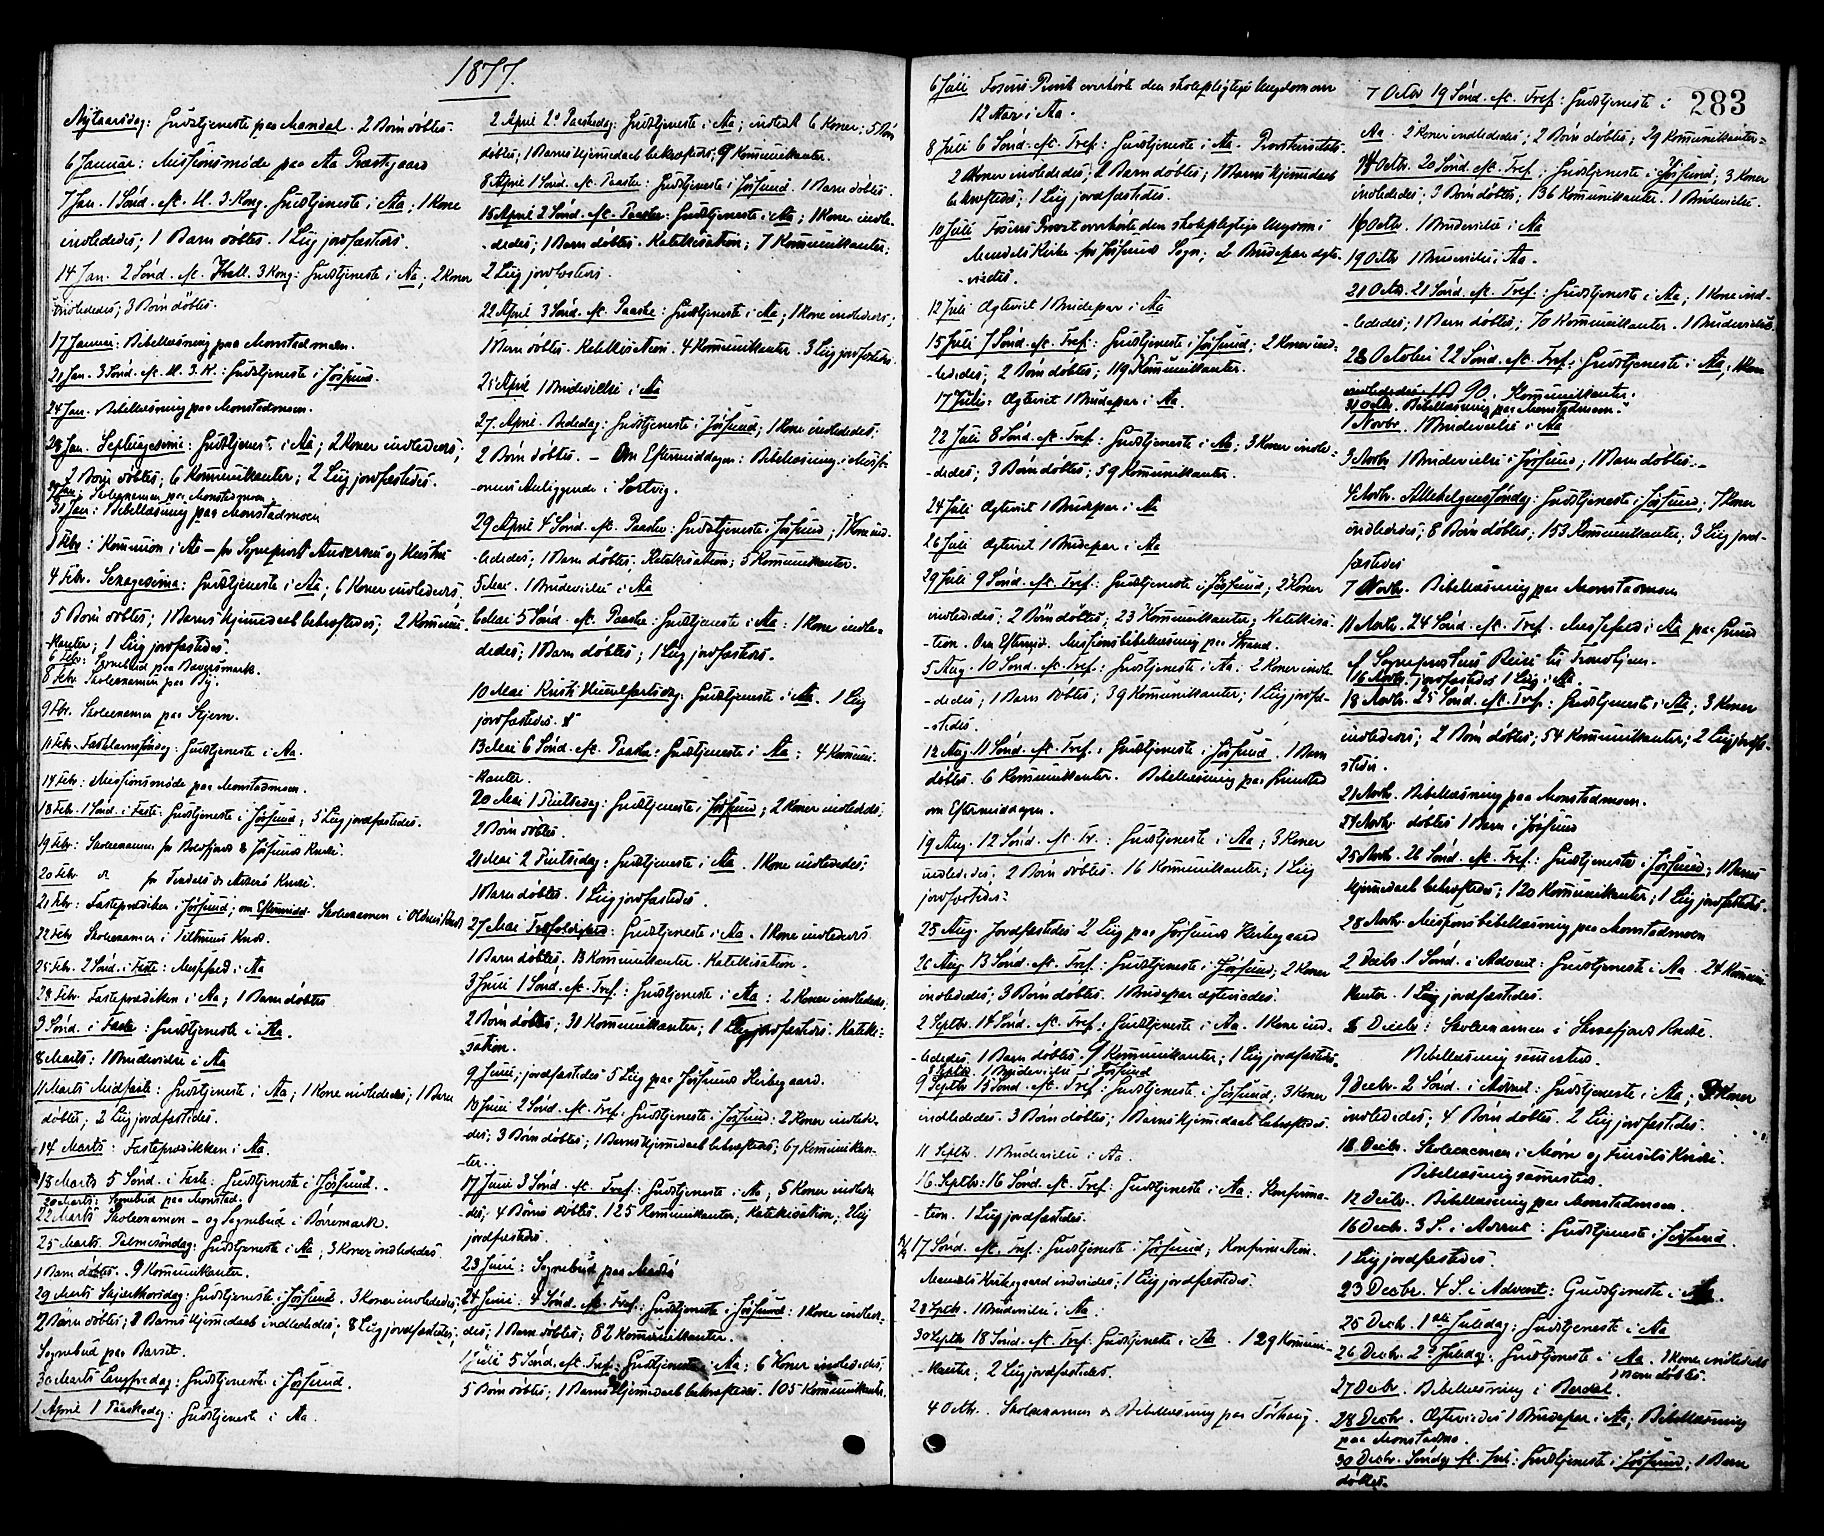 1877.
Nytaarsdag: Gudstjeneste paa Mandal. 2 Børn døbtes.
6 Januar: Missionsmøde paa Aa Præstgaard
7 Jan. 1 Sønd. eft. H. 3 Kong. Gudstjeneste i Aa; 1 Kone
indlededes; 1 Barn døbtes. 1 Liig jordfæstedes.
14 Jan. 2 Sønd. eft. Hell. 3 Kong: Gudstjeneste i Aa; 2 Koner
indlededes; 3 Børn døbtes.
17 Januar: Bibellæsning paa Monstadmoen.
21 Jan. 3 Sønd. eft. H. 3. K.: Gudstjeneste i Jøssund.
24 Jan. Bibellæsning paa Monstadmoen.
28 Jan. Septuagesima: Gudstjenest. i Aa; 2 Koner indlededes;
2 Børn døbtes; 6 Kommunikanter; 2 Liig jordfæstedes.
Skoleexamen paa Monstadmoen
31 Jan: Bibellæsning paa Monstadmoen
1 Febr: Kommunion i Aa – for Sogneprest Andersen og Hustru
4 Febr. Sexagesima: Gudstjeneste i Aa; 6 Koner indlededes;
5 Børn døbtes; 1 Barns Hjemmedaab bekræftedes; 2 Kommuni-
kanter; 1 Liig jordfæstedes.
6 Febr: Sognebud paa
8 Febr Skoleexamen paa By.
9 Febr. Skoleexamen paa Stjern.
11 Febr. Fastelavnssøndag: Gudstjeneste i Aa.
14 Febr: Missionsmøde paa Monstadmoen.
18 Febr. 1 Sønd. i Faste: Gudstjeneste i Jøssund; 5 Liig jordfæstedes.
19 Febr: Skoleexamen for & Jøssunds Kreds.
20 Febr do for Kreds.
21 Febr: Fasteprædiken i Jøssund; om Eftermidd. Skoleexamen i
22 Febr Skoleexamen i Kreds.
25 Febr. 2 Sønd. i Faste: Messefald i Aa
28 Febr. Fasteprædiken i Aa; 1 Barn døbtes
3 Sønd. i Faste: Gudstjeneste i Aa.
8 Marts: 1 Brudevielse i Aa
11 Marts Midfaste: Gudstjeneste i Aa; 1 Kone indlededes; 1 Barn
døbtes; 2 Liig jordfæstedes.
14 Marts: Fasteprædikken i Aa.
18 Marts 5 Sønd. i Faste. Gudstjeneste i Jøssund.
20 Marts: Sognebud paa Monstad.
22 Marts Skoleexamen – og Sognebud i Børremark.
25 Marts Palmesøndag: Gudstjeneste i Aa; 3 Koner indlededes
1 Barn døbtes. 9 Kommunikanter.
29 Marts Skjærthorsdag: Gudstjeneste i Jøssund. 3 Koner indlededes;
2 Børn døbtes; 2 Børns Hjemmedaab indlededes; 8 Liig jordfæstedes;
Sognebud paa Barset.
30 Marts Langfredag: Gudstjeneste i Jøssund.
1 April 1 Paaskedag: Gudstjeneste i Aa.
2 April 2 Paaskedag: Gudstjeneste i Aa; indled. 6 Koner; 5 Børn
døbtes; 1 Barns Hjemmedaab bekræftedes; 9 Kommunikanter.
8 April 1 Sønd. eft. Paaske: Gudstjeneste i Jøssund. 1 Barn døbtes.
15 April 2 Sønd. eft. Paaske: Gudstjeneste i Aa; 1 Kone indle-
-dedes; 1 Barn døbtes. Katekisation; 7 Kommunikanter;
2 Liig jordfæstedes.
22 April 3 Sønd. eft. Paaske: Gudstjeneste i Aa; 1 Kone indlededes;
1 Barn døbtes. Katekisation. 4 Kommunikanter. 3 Liig jordfæstedes.
April 1 Brudevielse i Aa
27. April. Bededag: Gudstjeneste i Jøssund; 1 Kone indlededes;
2 Børn døbtes. – Om Eftermiddagen: Bibellæsning i Missi-
-onens Anliggende i Sørtvig.
29 April 4 Sønd. eft. Paaske: Gudstjeneste i Jøssund; 1 Kone ind-
lededes; 1 Barn døbtes. Katekisation; 5 Kommunikanter.
5 Mai. 1 Brudevielse i Aa
6 Mai 5 Sønd. eft. Paaske: Gudstjeneste i Aa: 1 Kone indle-
dedes; 1 Barn døbtes; 1 Liig jordfæstedes.
10 Mai Kristi Himmelfartsdag: Gudstjeneste i Aa. 1 Liig
jordfæstedes.
13 Mai 6 Sønd. eft. Paaske: Gudstjeneste i Aa; 4 Kommuni-
-kanter.
20 Mai 1 Pintsedag: Gudstjeneste i Jøssund; 2 Koner indlededes;
2 Børn døbtes.
21 Mai 2 Pintsedag: Gudstjeneste i Aa. 1 Kone indlededes;
1 Barn døbtes. 1 Liig jordfæstedes.
27 Mai Trefoldighed: Gudstjeneste i Aa. 1 Kone indlededes.
1 Barn døbtes. 13 Kommunikanter. Katekisation.
3 Juni 1 Sønd. eft. Tref.: Gudstjeneste i Aa: 2 Koner indlededes;
2 Børn døbtes; 31 Kommunikanter; 1 Liig jordfæstedes. Kateki-
sation.
9 Juni; jordfæstedes 5 Liig paa Jøssunds Kirkegaard.
10 Juni 2 Sønd. eft. Tref. Gudstjeneste i Jøssund: 2 Koner indlede-
-des; 3 Børn døbtes; 1 Barns Hjemmedaab bekræftedes; 67 Kommunikan-
-ter.
17 Juni 3 Sønd. eft. Tref: Gudstjeneste i Aa; 5 Koner indlede-
des; 4 Børn døbtes. 125 Kommunikanter; Katekisation; 2 Liig
jordfæstedes.
23 Juni: Sognebud paa
24 Juni: 4 Sønd. eft. Tref.: Gudstjeneste i Jøssund: 1 Kone indlede-
des; 1 Barn døbtes; 82 Kommunikanter.
1 Juli 5 Sønd. eft. Tref: Gudstjeneste i Aa; 6 Koner indlededes;
5 Børn døbtes; 1 Barns Hjemmedaab bekræftedes. 105 Kommunikanter.
6 Juli Fosens Provst overhørte den skolepligtige Ungdom over
12 Aar i Aa.
8 Juli 6 Sønd. eft. Tref: Gudstjeneste i Aa. Provstevisitats.
2 Koner indlededes; 2 Børn døbtes; 1 Barns Hjemmedaab
bekræftedes; 1 Liig jordfæstedes.
10 Juli Fosens Provst overhørte den skolepligtige Ungdom i
Kirke for Jøssunds Sogn; 2 Brudepar ægte-
-viedes.
12 Juli Ægteviet 1 Brudepar i Aa
15 Juli 7 Sønd. eft. Tref: Gudstjeneste i Jøssund; 2 Koner ind-
-lededes; 2 Børn døbtes; 119 Kommunikanter.
17 Juli: Ægteviet 1 Brudepar i Aa.
22 Juli 8 Sønd. eft. Tref: Gudstjeneste i Aa; 3 Koner indle-
-dedes; 3 Børn døbtes; 59 Kommunikanter.
24 Juli Ægteviet 1 Brudepar i Aa
26 Juli Ægteviet 1 Brudepar i Aa
29 Juli 9 Sønd. eft. Tref: Gudstjeneste i Jøssund; 2 Koner
indlededes; 2 Børn døbtes; 23 Kommunikanter; Katekisa-
-tion. Om Efterm. Missionsbibellæsning paa Strand.
5 Aug. 10 Sønd. eft. Tref: Gudstjeneste i Aa: 2 Koner indle-
-dedes; 1 Barn døbtes; 39 Kommunikanter; 1 Liig jordfæ-
-stedes.
12 Aug. 11 Sønd. eft. Tref: Gudstjeneste i Jøssund. 1 Barn
døbtes. 6 Kommunikanter. Bibellæsning paa
om Eftermiddagen.
19 Aug. 12 Sønd. eft. Tr.: Gudstjeneste i Aa; 3 Koner
indlededes; 2 Børn døbtes. 16 Kommunikanter; 1 Liig
jordfæstedes:
25 Aug. Jordfæstedes 2 Liig paa Jøssunds Kirkegaard
26 Aug 13 Sønd. eft. Tref: Gudstjeneste i Jøssund; 2 Koner
indlededes; 3 Børn døbtes. 1 Brudepar ægteviedes.
2 Septbr. 14 Sønd. eft. Tref: Gudstjeneste i Aa. 1 Kone ind-
-lededes. 1 Barn døbtes. 9 Kommunikanter; 1 Liig jordfæstedes.
8 Septbr. 1 Brudevielse i Jøssund
9 Septbr 15 Sønd. eft. Tref: Gudstjeneste i Jøssund, 3 Koner
indlededes. 3 Børn døbtes; 1 Barns Hjemmedaab bekræftedes.
11 Septbr. 1 Brudevielse i Aa.
16. Septbr. 16 Sønd. eft. Tref: Gudstjeneste i Aa; Konfirma-
-tion. 1 Liig jordfæstedes.
17 Sønd. eft. Tref: Gudstjeneste i Jøssund; Konfirmation.
Kirkegaard indviedes; 1 Liig jordfæstedes.
28 Septbr. 1 Brudevielse i Aa:
30 Septbr 18 Sønd. eft. Tref: Gudstjeneste i Aa. 129 Kommuni-
-kanter; 2 Liig jordfæstedes.
4 Octbr. Skoleexamen & Bibellæsning paa Tørhaug.
283
7 Octbr 19 Sønd. eft. Tref: Gudstjeneste i
Aa. 2 Koner indlededes; 2 Børn døbtes; 29 Kommunikanter.
14 Octbr. 20 Sønd. eft. Tref: Gudstjeneste i Jøssund; 3 Koner
indlededes; 3 Børn døbtes; 36 Kommunikanter. 1 Brudevielse.
16 Octbr. 1 Brudevielse i Aa
19 Octbr 1 Brudevielse i Aa.
21 Octbr. 21 Sønd. eft. Tref.: Gudstjeneste i Aa; 1 Kone ind-
-lededes; 1 Barn døbtes; 70 Kommunikanter. 1 Brudevielse.
28 October 22 Sønd. eft. Tref: Gudstjeneste i Aa; 1 Kone
indlededes 90. Kommunikanter.
31 Octbr. Bibellæsning paa Monstadmoen.
1 Novbr. 1 Brudevielse i Aa
3 Novbr 1 Brudevielse i Jøssund; 1 Barn døbtes.
4 Novbr. Allehelgenssøndag: Gudstjeneste i Jøssund; 7 Koner
indlededes; 8 Børn døbtes; 153 Kommunikanter; 3 Liig jord-
fæstedes
7 Novbr. Bibellæsning paa Monstadmoen
11 Novbr. 24 Sønd. eft. Tref. Messefald i Aa paa Grund
af Sogneprestens Reise til Trondhjem.
16 Novbr. jordfæstedes 1 Liig i Aa.
18 Novbr. 25 Sønd. eft. Tref: Gudstjeneste i Aa; 3 Koner
indlededes; 2 Børn døbtes; 54 Kommunikanter; 2 Liig jordfæ-
stedes.
21 Novbr. Bibellæsning paa Monstadmoen.
24 Novbr døbtes 1 Barn i Jøssund
25 Novbr. 26 Sønd. eft. Tref: Gudstjeneste i Jøssund; 1 Barns
Hjemmedaab bekræftedes; 120 Kommunikanter; 1 Liig jordfæstedes.
28 Novbr Missionsbibellæsning paa Monstadmoen
2 Decbr. 1 Sønd. i Advent: Gudstjeneste i Aa. 24 Kommuni-
kanter. 1 Liig jordfæstedes.
Decbr: Skoleexamen i Kreds.
Bibellæsning sammesteds.
9 Decbr. 2 Sønd. i Advent: Gudstjeneste i Aa; Koner
indlededes; 4 Børn døbtes. 2 Liig jordfæstedes.
Decbr. Skoleexamen i Kreds.
Bibellæsning sammesteds.
12 Decbr. Bibellæsning paa Monstadmoen.
16 Decbr. 3 S. i Advent: Gudstjeneste i Jøssund.
1 Liig jordfæstedes.
23 Decbr. 4 S. i Advent: Gudstjeneste i Aa.
25 Decbr. 1ste Juledag: Gudstjeneste i Aa
26 Decbr. 2 Juledag: Gudstjeneste i Aa. 1 Kone indlededes
1 Barn døbtes.
27 Decbr. Bibellæsning i Berdal.
28 Decbr. Ægteviedes 1 Brudepar i Aa; Bibellæsning
paa Monstadmo.
30 Decbr. Søndag eft. Jul: Gudstjeneste i Jøssund; 1 Barn
døbtes.